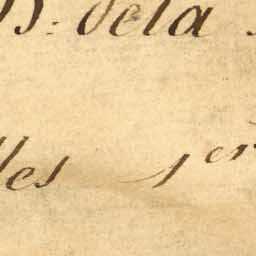 D: de la
les 1er